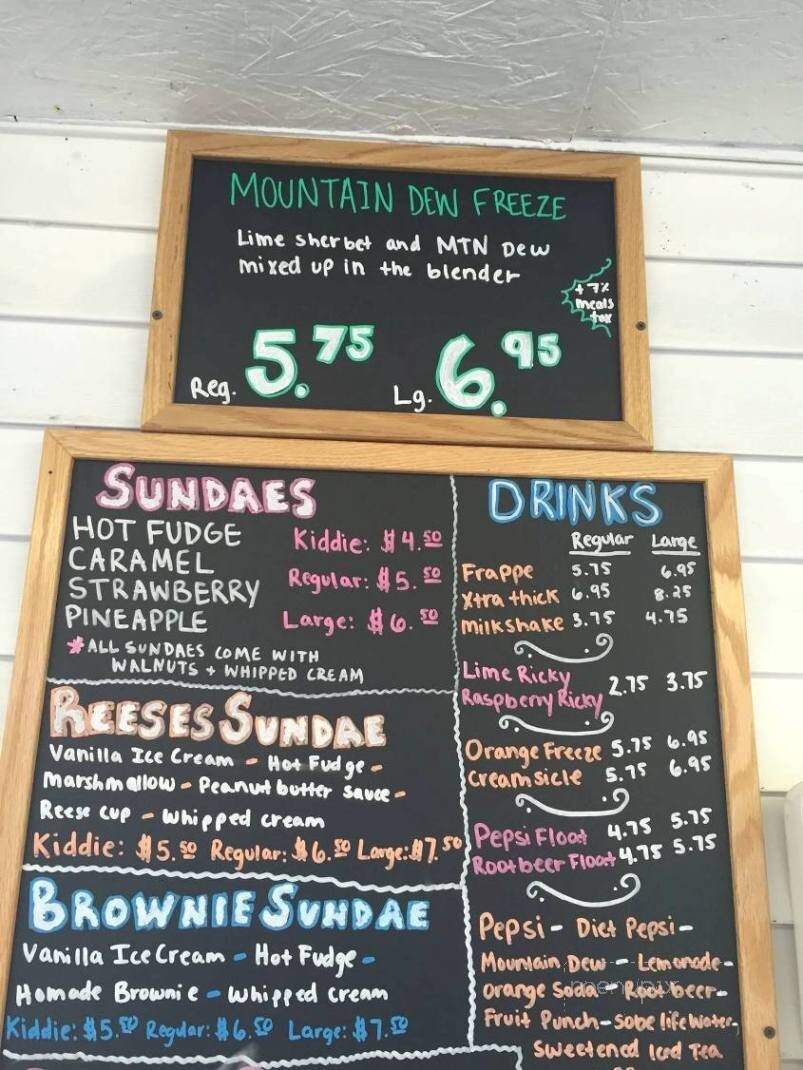 MOUNTAIN DEW FREEZE
Lime sherbet and MTN DEW
mixed up in the blender
+ 7%
meals
tax
Reg. 5.75 Lg. 6.95
SUNDAES
HOT FUDGE
CARAMEL
STRAWBERRY
PINEAPPLE
Kiddie: $4.50
Regular: $5.50
Large: $6.50
*ALL SUNDAES COME WITH
WALNUTS + WHIPPED CREAM
REESES SUNDAE
Vanilla Ice Cream - Hot Fudge -
Marshmallow - Peanut butter sauce -
Reese cup - whipped cream
Kiddie: $5.50 Regular: $6.50 Large: $7.50
BROWNIE SUNDAE
Vanilla Ice Cream - Hot Fudge -
Homade Brownie - whipped cream
Kiddie: $5.50 Regular: $6.50 Large: $7.50
DRINKS
Regular Large
Frappe 5.75 6.95
Xtra thick 6.95 8.25
milkshake 3.75 4.75
Lime Ricky
Raspberry Ricky 2.75 3.75
Orange Freeze 5.75 6.95
Creamsicle 5.75 6.95
Pepsi Float 4.75 5.75
Rootbeer Float 4.75 5.75
Pepsi - Diet Pepsi -
Mountain Dew - Lemonade -
orange Soda - Root beer -
Fruit Punch - Sobe lifeWater -
Sweetened Iced Tea